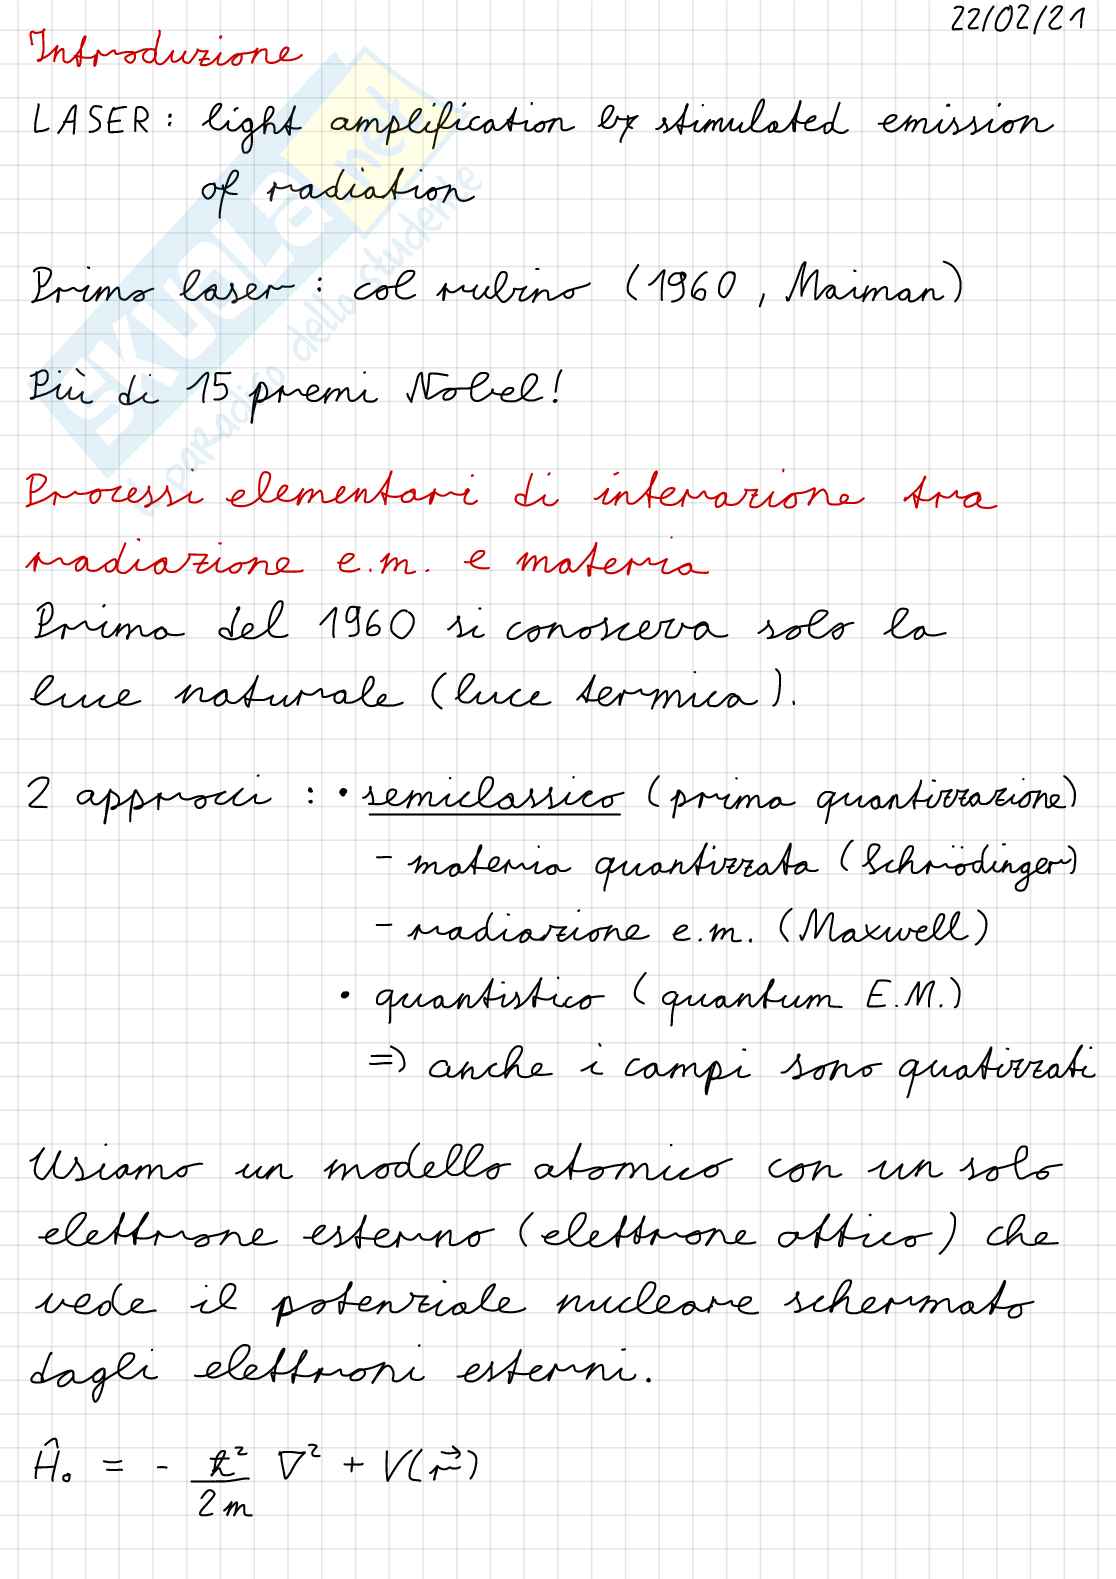 22/02/21
Introduzione
LASER: light amplification by stimulated emission
of radiation
Primo laser: col rubino (1960, Maiman)
Più di 15 premi Nobel!
Processi elementari di interazione tra
radiazione e.m. e materia
Prima del 1960 si conosceva solo la
luce naturale (luce termica).
2 approcci: • semiclassico (prima quantizzazione)
- materia quantizzata (Schrödinger)
- radiazione e.m. (Maxwell)
• quantistico (quantum E.M.)
=> anche i campi sono quatizzati
Usiamo un modello atomico con un solo
elettrone esterno (elettrone ottico) che
vede il potenziale nucleare schermato
dagli elettroni esterni.
Ĥ₀ = - ħ²/2m ∇² + V(r⃗)
SKUOLA.net
il paradiso dello studente